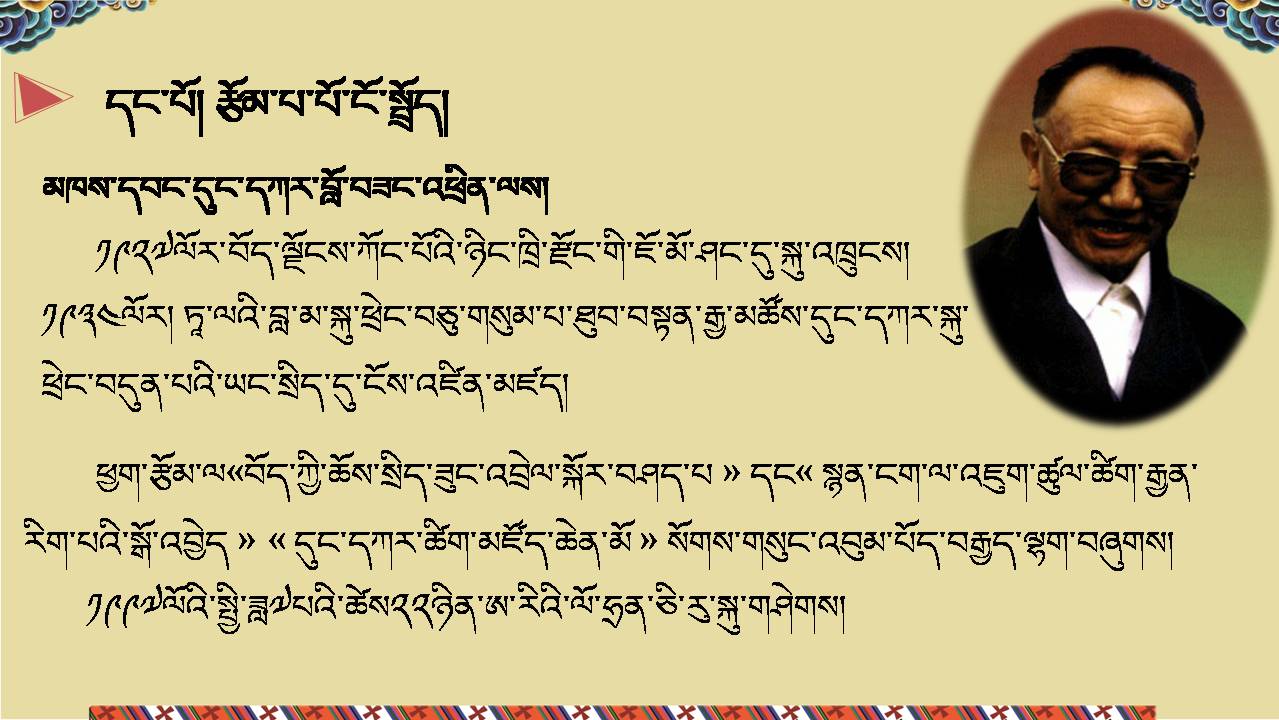 དང་པོ། རྩོམ་པ་པོ་ངོ་སྤྲོད།
མཁས་དབང་དུང་དཀར་བློ་བཟང་འཕྲིན་ལས།
༡༩༢༧ལོར་བོད་ལྗོངས་ཀོང་པོའི་ཉིང་ཁྲི་རྫོང་གི་ཇོ་མོ་ཤང་དུ་སྐུ་འཁྲུངས།
༡༩༣༤ལོར། ཏཱ་ལའི་བླ་མ་སྐུ་ཕྲེང་བཅུ་གསུམ་པ་ཐུབ་བསྟན་རྒྱ་མཚོས་དུང་དཀར་སྐུ་
ཕྲེང་བདུན་པའི་ཡང་སྲིད་དུ་ངོས་འཛིན་མཛད།
ཕྱག་རྩོམ་ལ«བོད་ཀྱི་ཆོས་སྲིད་ཟུང་འབྲེལ་སྐོར་བཤད་པ » དང« སྙན་ངག་ལ་འཇུག་ཚུལ་ཚིག་རྒྱན་
རིག་པའི་སྒོ་འབྱེད » « དུང་དཀར་ཚིག་མཛོད་ཆེན་མོ » སོགས་གསུང་འབུམ་པོད་བརྒྱད་ལྷག་བཞུགས།
༡༩༩༧ལོའི་སྤྱི་ཟླ༧པའི་ཚེས༢༢ཉིན་ཨ་རིའི་ལོ་ཧྲན་ཅི་རུ་སྐུ་གཤེགས།